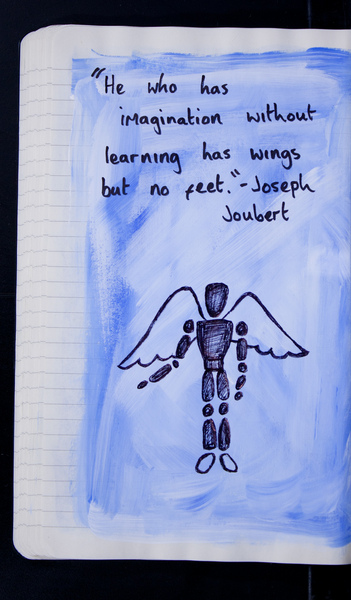 "He who has
imagination without
learning has wings
but no feet."-Joseph
Joubert